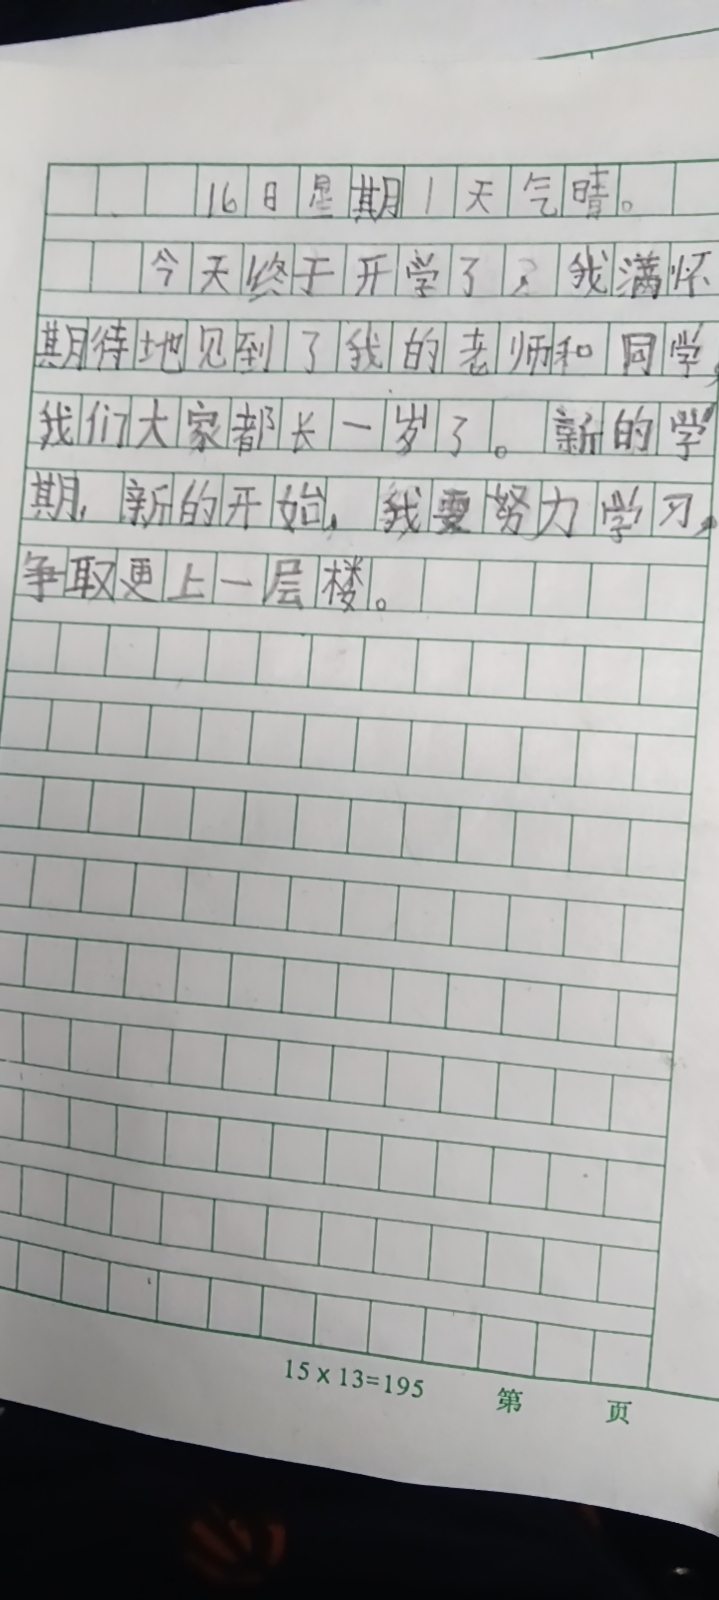 16日星期1天气晴。
今天终于开学了,我满怀
期待地见到了我的老师和同学,
我们大家都长一岁了。新的学
期,新的开始,我要努力学习,
争取更上一层楼。
15×13=195 第 页